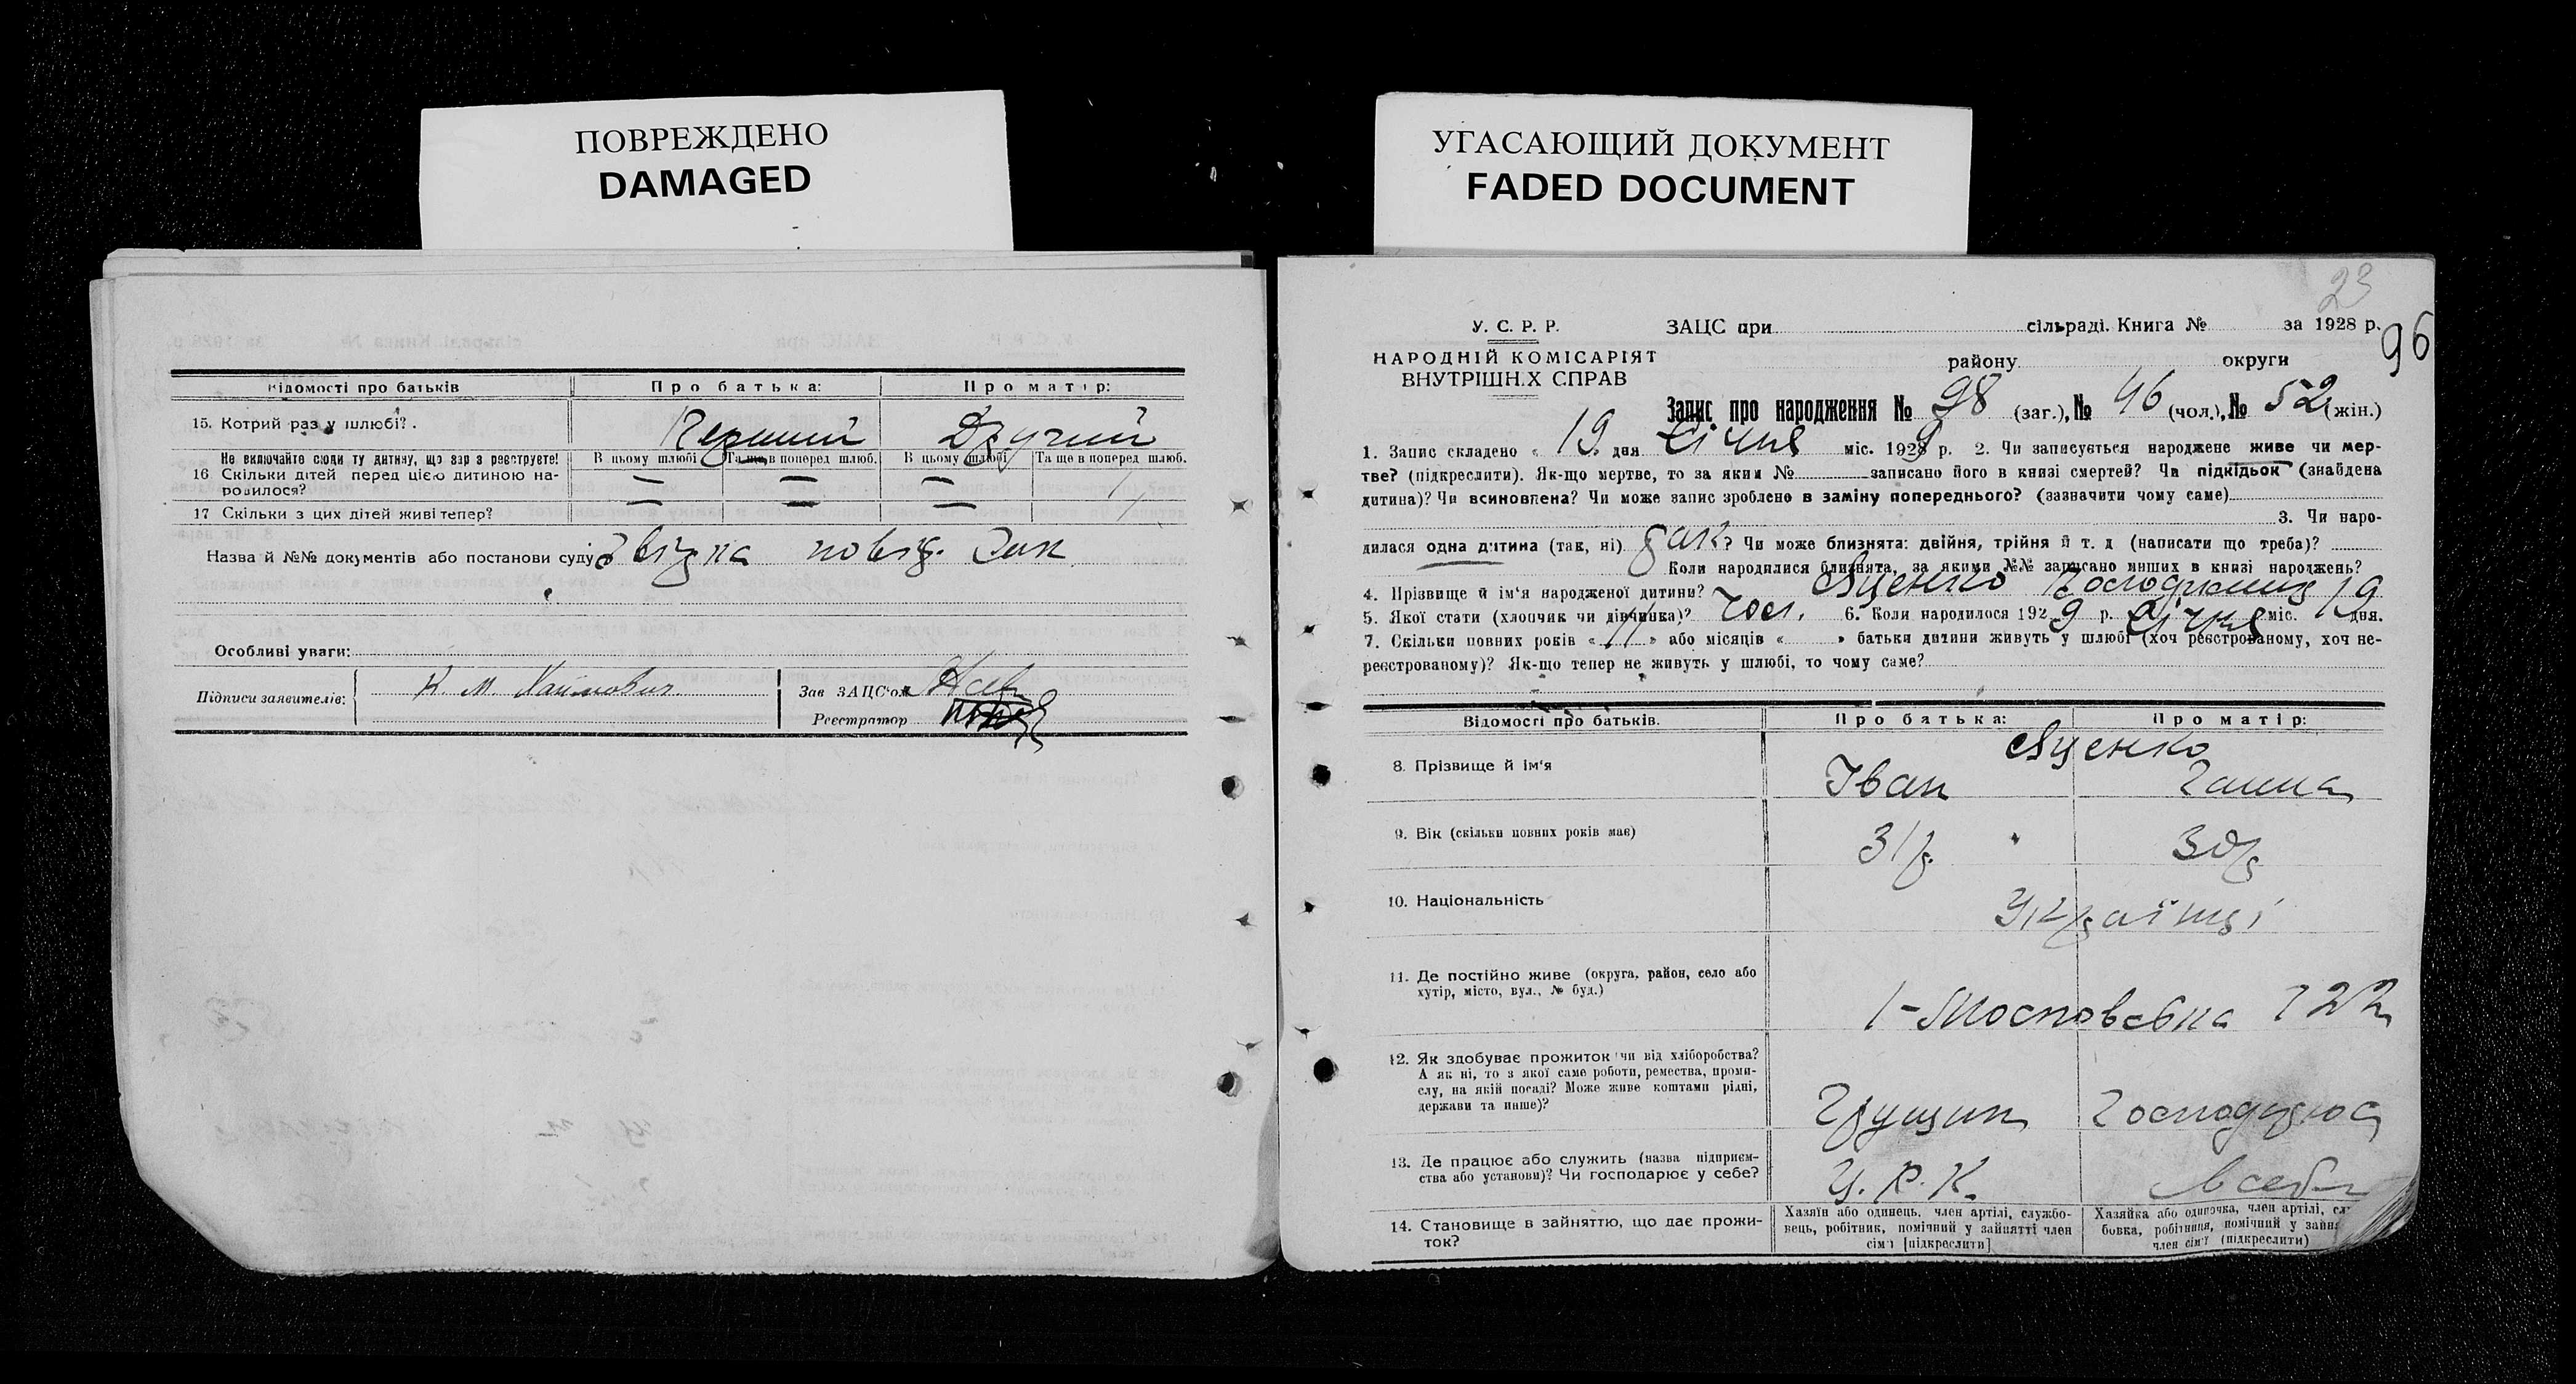 ПОВРЕЖДЕНО
DAMAGED
УГАСАЮЩИЙ ДОКУМЕНТ
FADED DOCUMENT
Відомості про батьків
Про батька:
Про матір:
15. Котрий раз у шлюбі?.
Перший
Другий
Не включайте сюди ту дитину, що зар з реєструєте!
В цьому шлюбі
Та ще в поперед шлюб.
В цьому шлюбі
Та ще в поперед шлюб.
16 Скільки дітей перед цією дитиною на-
родилося?
— — — /
17 Скільки з цих дітей живі тепер?
— — — /
Назва й №№ документів або постанови суду
Особливі уваги:
Підписи заявителів:
Зав ЗАЦС'ом
Реєстратор
23
96
У. С. Р. Р.
НАРОДНІЙ КОМІСАРІЯТ
ВНУТРІШН.Х СПРАВ
ЗАЦС при сільраді. Книга № за 1928 р.
району округи
Запис про народження № 98 (заг.), № 46 (чол.), № 52 (жін.)
1. Запис складено « 19. дня Січня міс. 1929 р. 2. Чи записується народжене живе чи мер-
тве? (підкреслити). Як-що мертве, то за яким № записано його в книзі смертей? Чи підкідьок (знайдена
дитина)? Чи всиновлена? Чи може запис зроблено в заміну попереднього? (зазначити чому саме)
3. Чи наро-
дилася одна дитина (так, ні) так? Чи може близнята: двійня, трійня й т. д (написати що треба)?
Коли народилися близнята, за якими №№ записано инших в книзі народжень?
4. Прізвище й ім'я народженої дитини? Яценко
5. Якої стати (хлопчик чи дівчинка)? чол. 6. Коли народилося 1929 р. Січня міс. 19 дня.
7. Скільки повних років « » або місяців « » батьки дитини живуть у шлюбі (хоч реєстрованому, хоч не-
реєстрованому)? Як-що тепер не живуть у шлюбі, то чому саме?
Відомості про батьків.
Про батька:
Про матір:
8. Прізвище й ім'я
Яценко
Іван
Ганна
9. Вік (скільки повних років має)
31 р.
30 р
10. Національність
Українці
11. Де постійно живе (округа, район, село або
хутір, місто, вул., № буд.)
122
12. Як здобуває прожиток чи від хліборобства?
А як ні, то з якої саме роботи, ремества, проми-
слу, на якій посаді? Може живе коштами рідні,
держави та инше)?
Грущик
Господарює
13. Де працює або служить (назва підприєм-
ства або установи)? Чи господарює у себе?
Ц. Р. К.
в себе
14. Становище в зайняттю, що дає прожи-
ток?
Хазяїн або одинець, член артілі, службо-
вець, робітник, помічний у зайнятті член
сім'ї [підкреслити]
Хазяйка або одиночка, член артілі, сл
бовка, робітниця, помічний у зайня
член сім'ї (підкреслити)